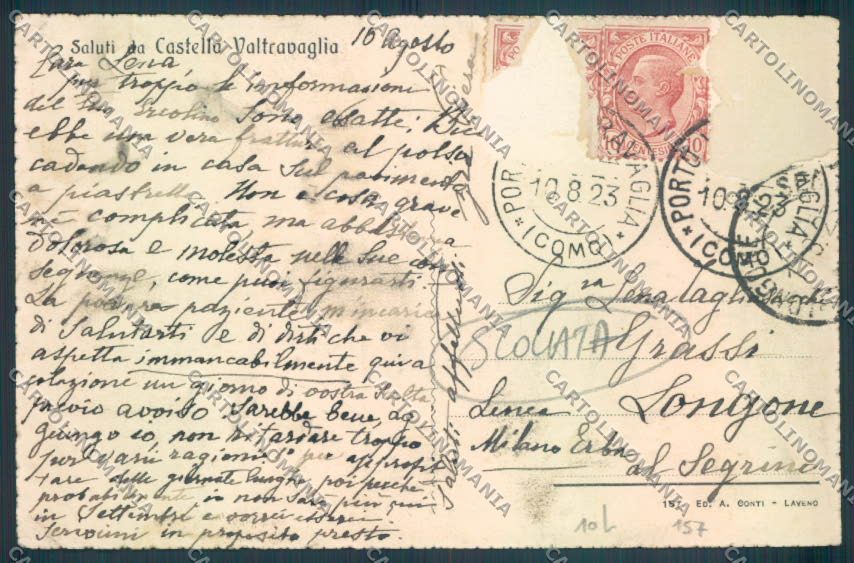 Saluti da Castello Valtravaglia
10 Agosto
Cara Lena
pur troppo le informazioni
del tuo Ercolino sono esatte;
ebbe una vera frattura al polso
cadendo in casa sul pavimento
a piastrelle. Non è cosa grave
nè complicata, ma abbastanza
dolorosa e molesta nelle sue con
seguenze, come puoi figurarti.
La povera paziente m'incarica
di salutarti e di dirti che vi
aspetta immancabilmente qui a
colazione un giorno di vostra scelta
previo avviso. Sarebbe bene, ag
giungo io, non ritardare troppo
per varii ragioni: per approfit
tare delle giornate lunghe, poi perchè
probabilmente io non sarò più qui
in Settembre e vorrei esserci.
Scrivimi in proposito presto.
Saluti affettuosi
POSTE ITALIANE
CENTESIMI 10
PORTO VALTRAVAGLIA
10.8.23
(COMO)
PORTO VALTRAVAGLIA
10.8.23
(COMO)
Sig.ra Lena Tagliasacchi
Grassi
SCOLLATA
Longone
al Segrino
Linea
Milano Erba
157 ED. A. CONTI - LAVENO
10L 157
CARTOLINOMANIA